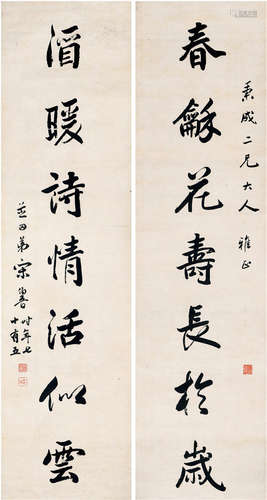 秉成二兄大人 雅正
春龢花壽長於歲
酒暖詩情活似雲
芝田弟宋伯魯
時年七
十有五